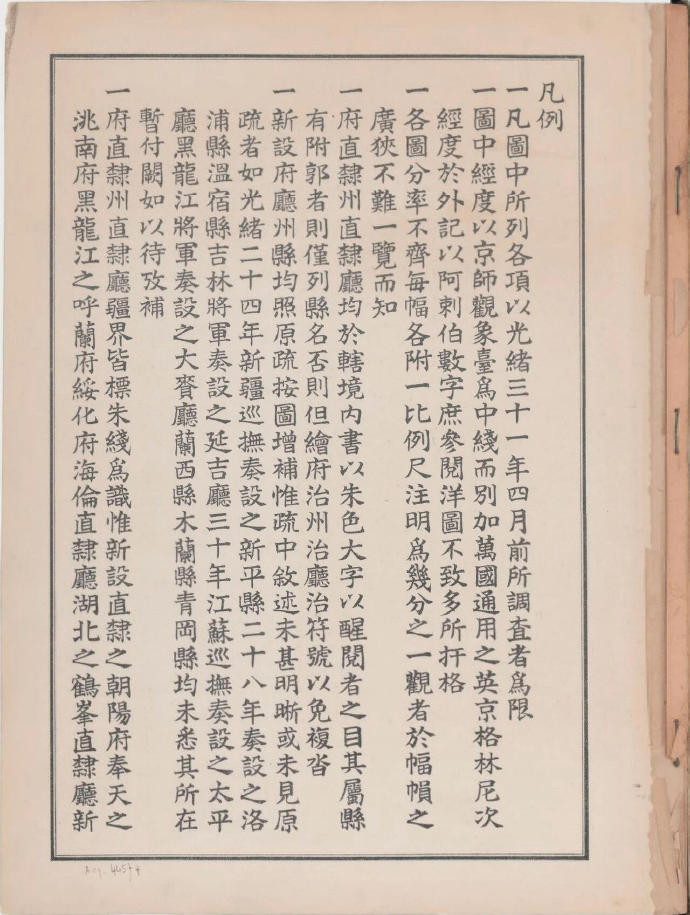 凡例
一凡圖中所列各項以光緒三十一年四月前所調査者爲限
一圖中經度以京師觀象臺爲中綫而別加萬國通用之英京格林尼次
經度於外記以阿剌伯數字庶參閱洋圖不致多所扞格
一各圖分率不齊每幅各附一比例尺注明爲幾分之一觀者於幅幀之
廣狹不難一覽而知
一府直隸州直隸廳均於轄境內書以朱色大字以醒閱者之目其屬縣
有附郭者則僅列縣名否則但繪府治州治廳治符號以免複沓
一新設府廳州縣均照原疏按圖增補惟疏中敘述未甚明晰或未見原
疏者如光緒二十四年新疆巡撫奏設之新平縣二十八年奏設之洛
浦縣溫宿縣吉林將軍奏設之延吉廳三十年江蘇巡撫奏設之太平
廳黑龍江將軍奏設之大賚廳蘭西縣木蘭縣青岡縣均未悉其所在
暫付闕如以待攷補
一府直隸州直隸廳疆界皆標朱綫爲識惟新設直隸之朝陽府奉天之
洮南府黑龍江之呼蘭府綏化府海倫直隸廳湖北之鶴峯直隸廳新